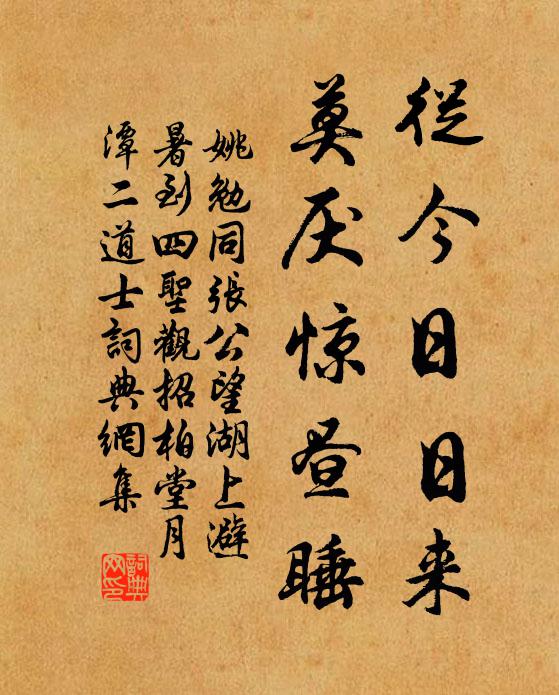 從今日日来
莫厌惊昼睡
姚勉同張公望湖上避
暑到四聖觀招柏堂月
潭二道士詞典網集
詞典网印